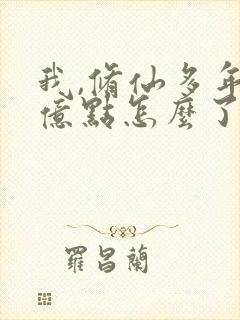 我,脩仙多年
億點怎麼了
羅昌蘭